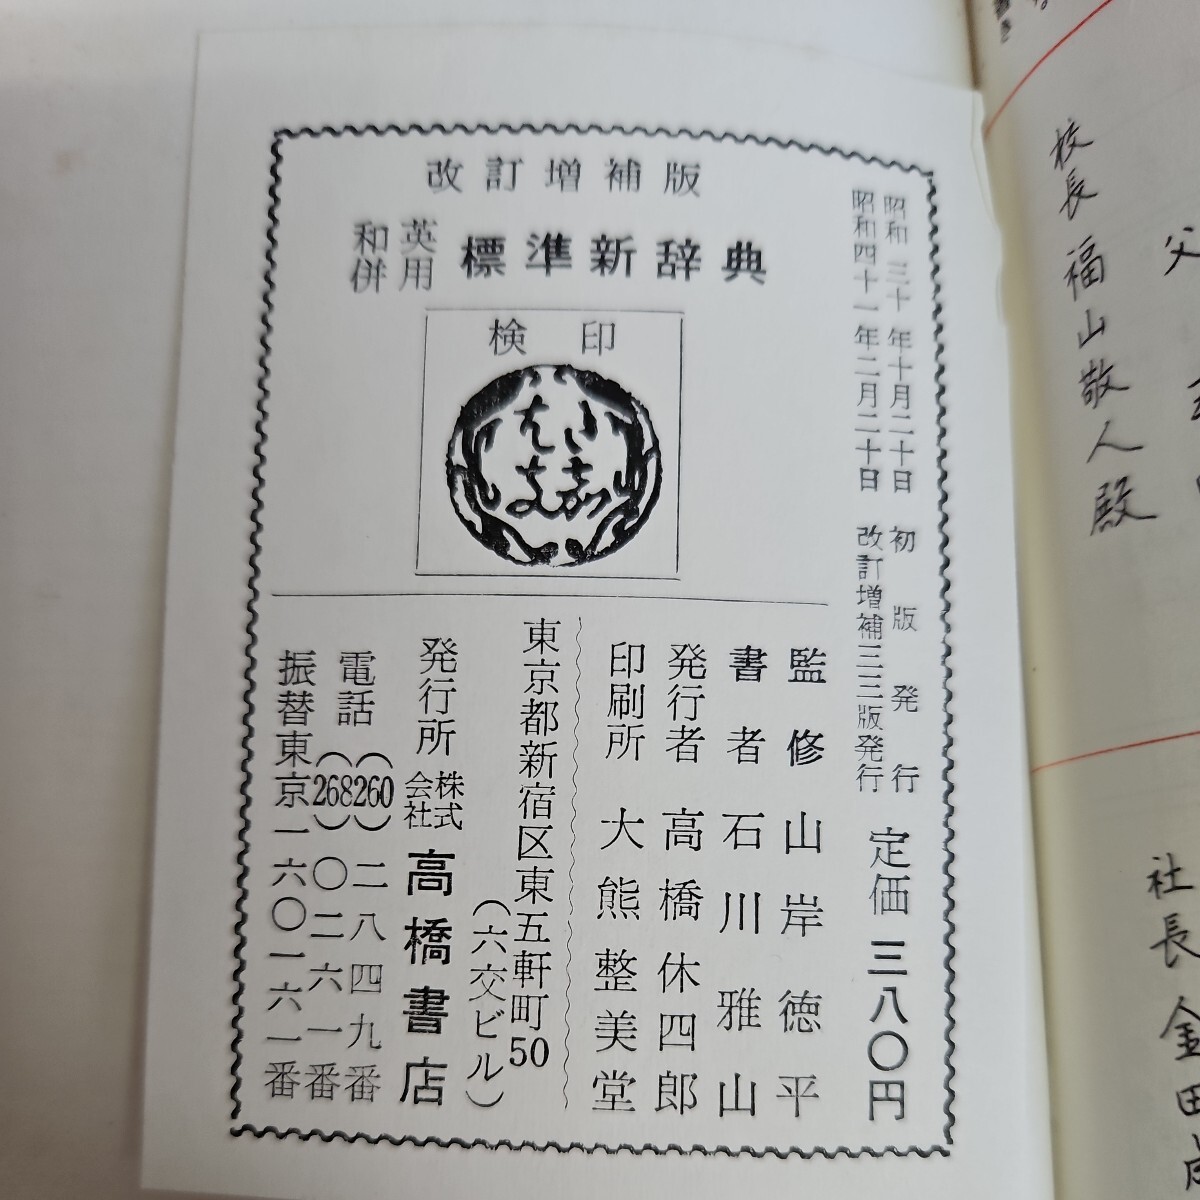 改訂増補版
英和
用併
標準新辞典
検印
昭和三十年十月二十日 初版発行
昭和四十一年二月二十日 改訂増補三三版発行
定価 三八〇円
監修 山岸徳平
書者 石川雅山
発行者 高橋休四郎
印刷所 大熊整美堂
東京都新宿区東五軒町50
(六交ビル)
発行所 株式会社 高橋書店
電話 (260) 二八四九番
(268) 〇二六一番
振替東京一六〇一六一番
校長 福山敬人殿
父
社長 金田